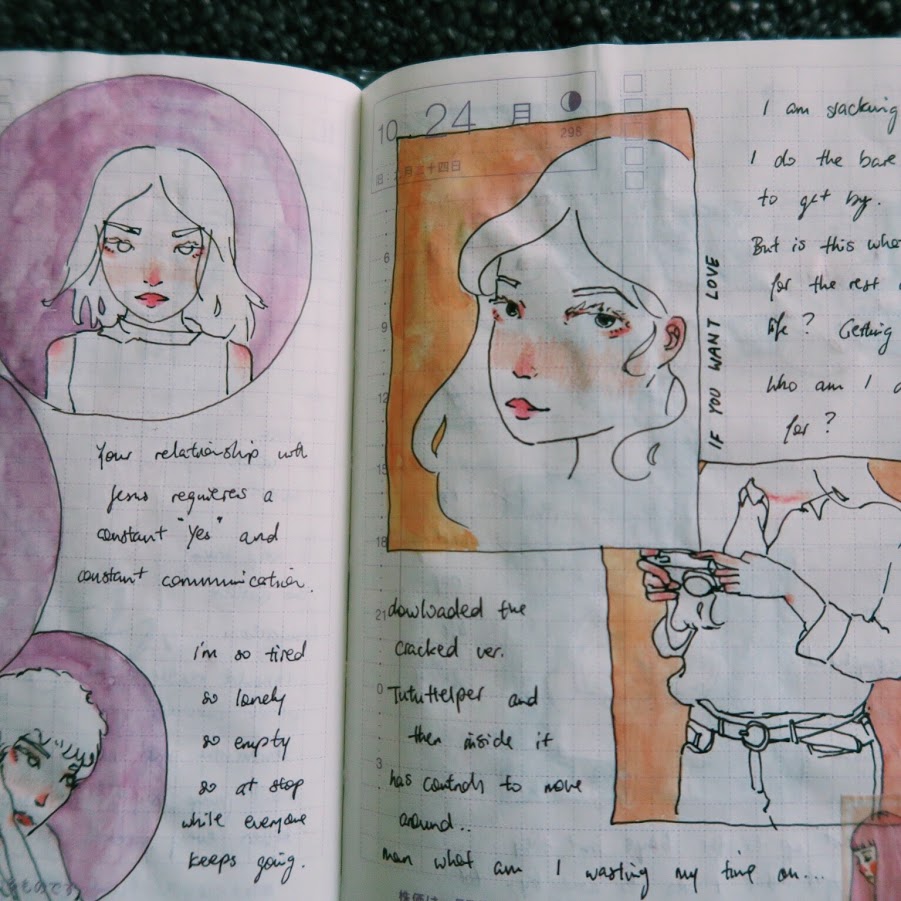 Your relationship with
Jesus requieres a
constant "Yes" and
constant communication.
i'm so tired
so lonely
so empty
so at stop
while everyone
keeps going.
ものです
10. 24 月
298
十月二十四日
6
9
12
15
18
21
0
3
IF YOU WANT LOVE
I am slacking
I do the bare
to get by.
But is this
for the rest
life? Getting
Who am I
for?
dowloaded the
cracked ver.
TutuHelper and
then inside it
has controls to move
around..
man what am I wasting my time on...